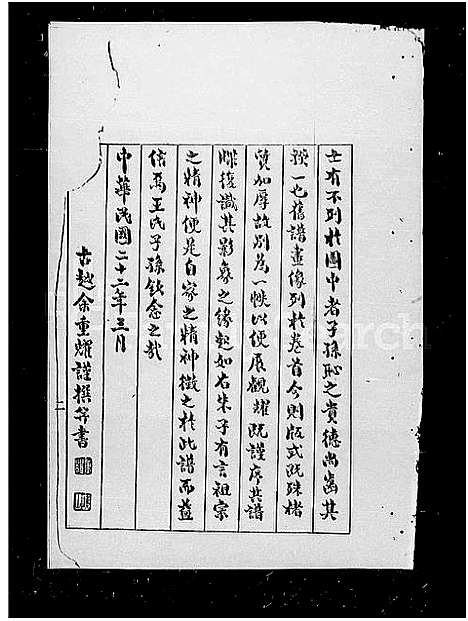 士有不列於圖中者子孫恥之貴德尚齒其
類一也舊譜畫像列於卷首今則版式既殊楮
質加厚故別為一帙以便展觀耀既謹序其譜
牒復識其影象之緣起如右朱子有言祖宗
之精神便是自家之精神徵之於此譜而益
信焉王氏子孫欽念之哉
中華民國二十二年三月
古越余重耀謹撰并書
二